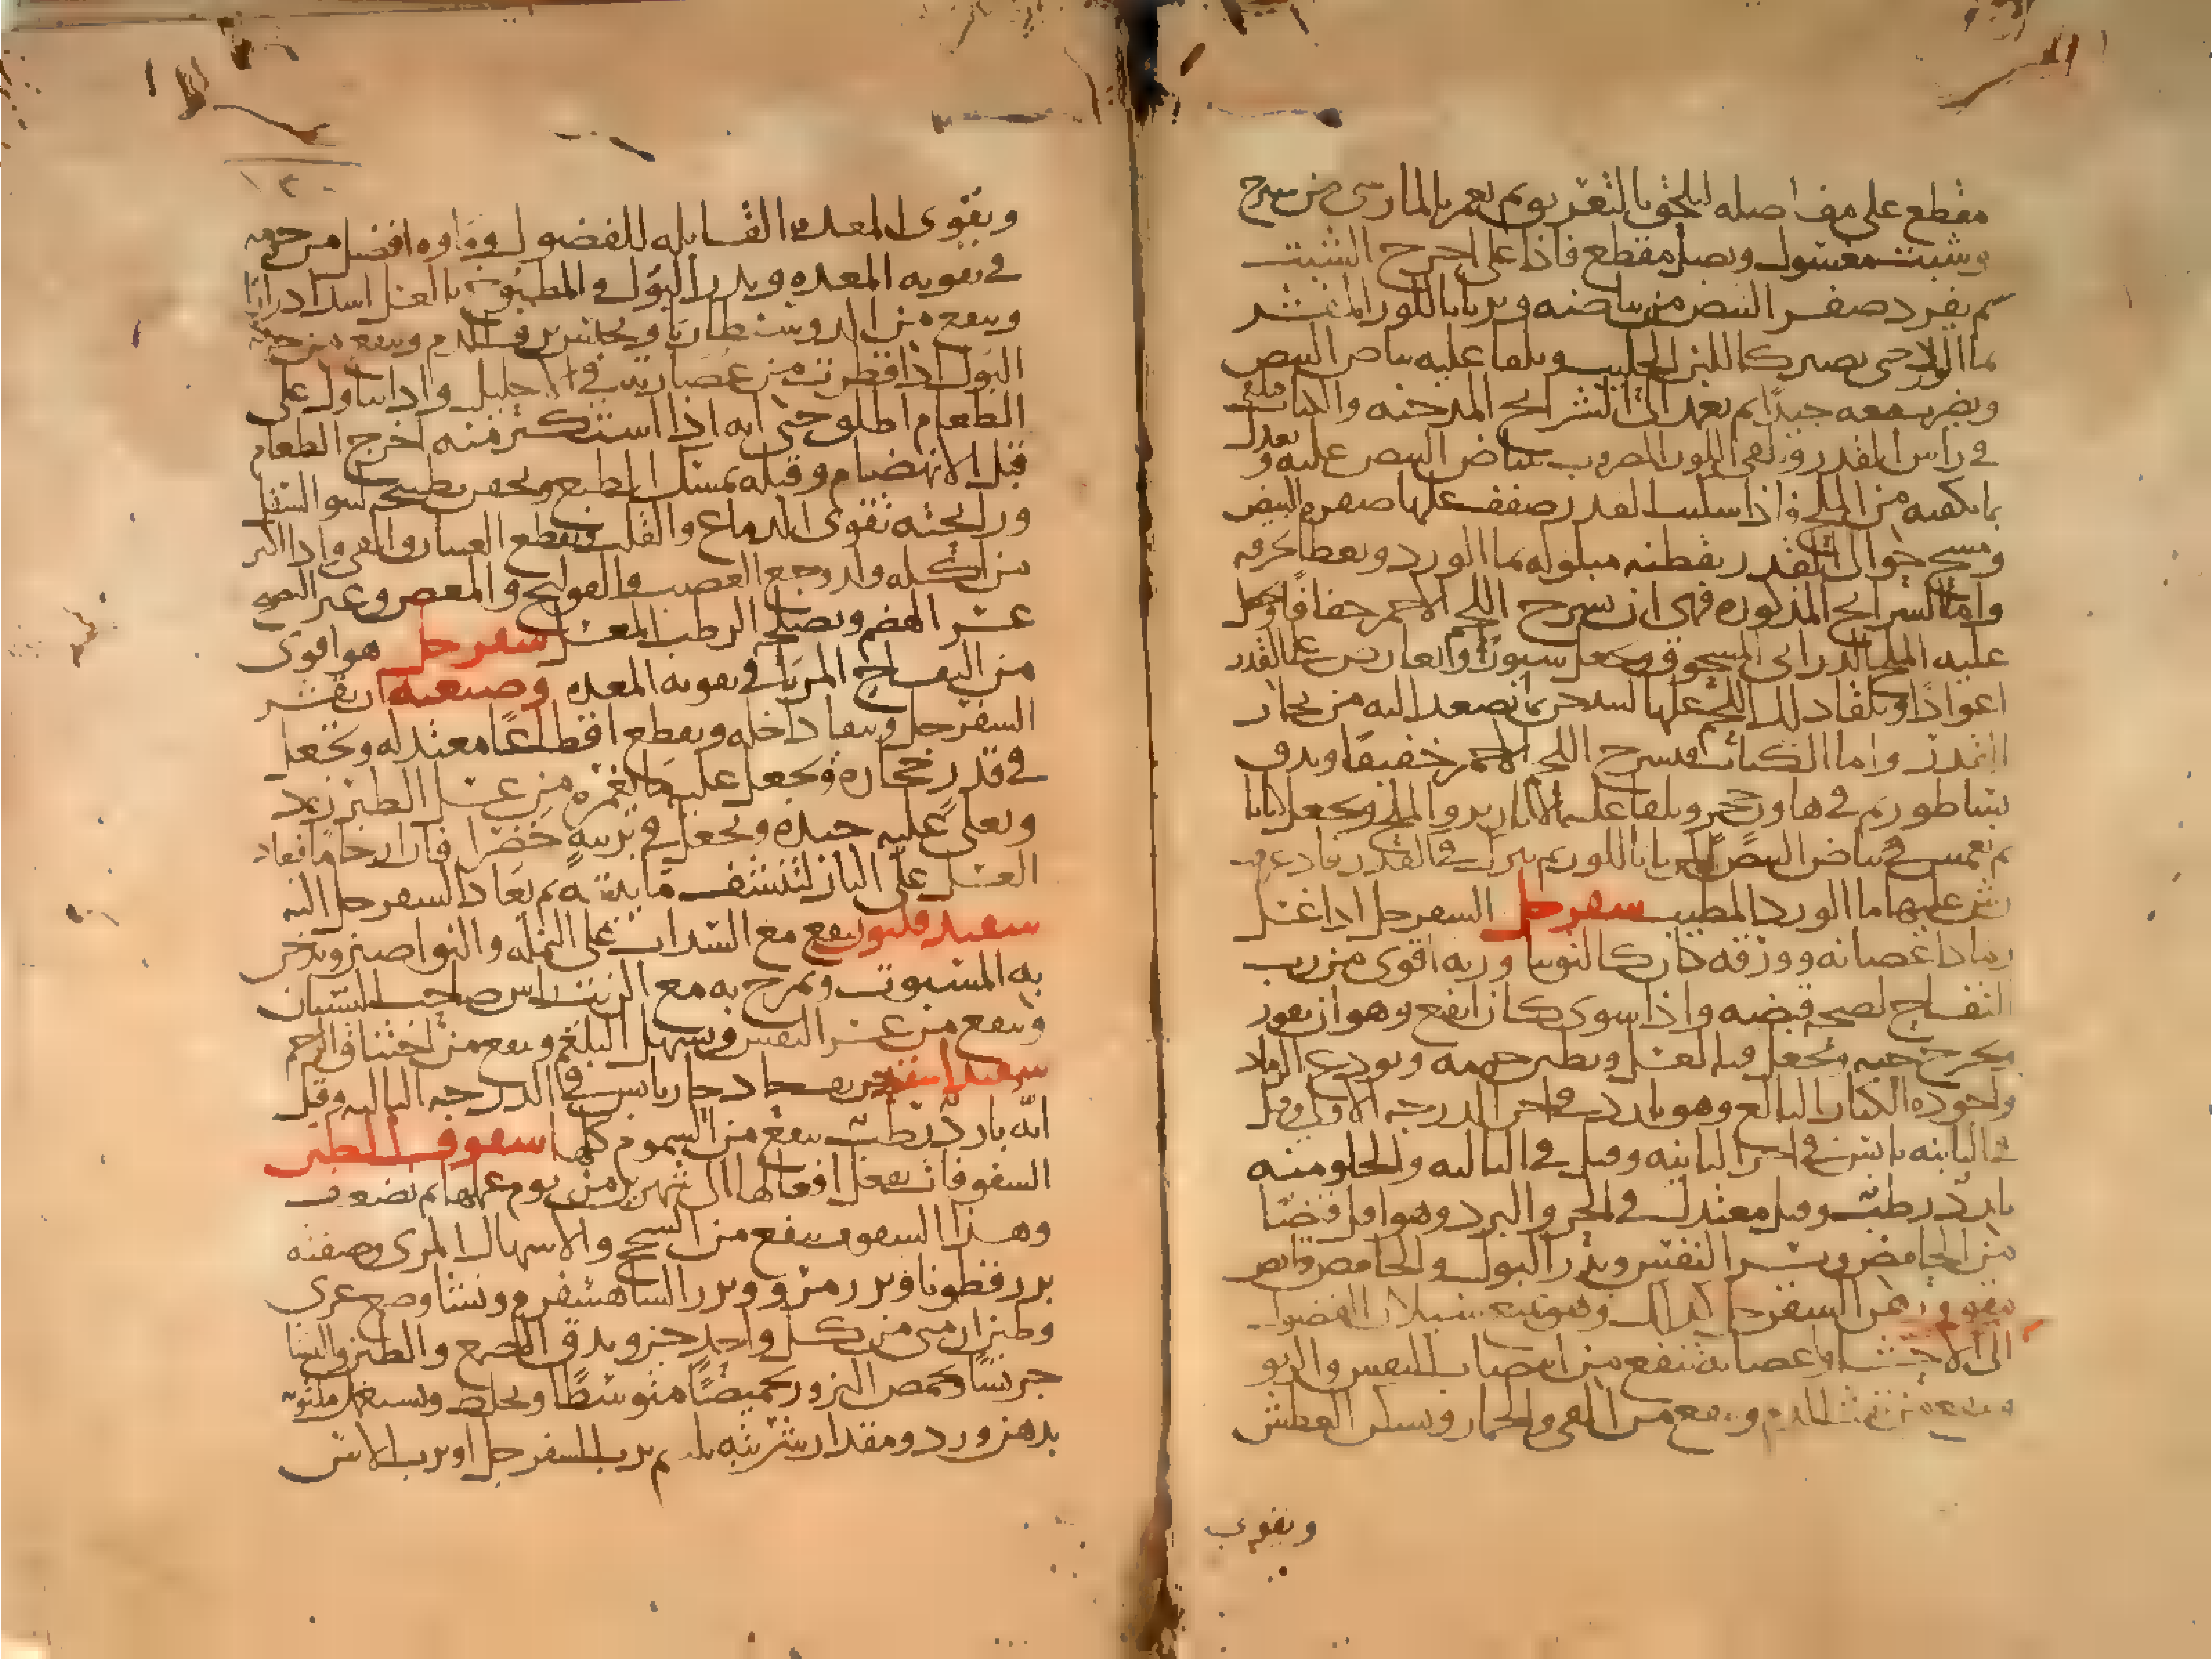 مقطع على مفاصله ليلحق بالتغريق ثم يغمر بالما ويرمى من سرج
وشبت مغسول وبصل مقطع فاذا غلى اخرج الشبت
ثم يفرد صفر البيض من بياضه ويربا باللوز المقشر
بما الورد حتى يصير كاللبن الحليب ويلقا عليه بياض البيض
ويضرب معه جيدا ثم يعمد الى الشرايح المدخنه والكباب فتلقى
في راس القدر ويلقى اللوز المضروب ببياض البيض عليه ويعدل
بما يكفيه من الملح فاذا سكنت القدر صفف عليها صفره البيض
ومسح جوانب القدر بقطنه مبلوله بما الورد وتغطا بخرقه
واما الشرايح المذكوره فهى ان يشرح اللحم الاحمر خفافا ويجعل
عليه الملح الدراني المسحوق ويجعل سيورا ويعارض على القدر
اعوادا ويلقا ذلك اللحم عليها ليتدخن بما يصعد اليه من بخار
القدر واما الكباب فيشرح اللحم الاحمر خفيفا ويدق
بساطور ثم في هاون حجر ويلقا عليه الابازير والملح ويجعل كبابا
ثم يغمس في بياض البيض المربا باللوز ثم يترك في القدر فاذا غرفت
رش عليها ما الورد المطيب سفرجل السفرجل اذا غسل
رماد اغصانه وورقه كان كالتوتيا وربه اقوى من رب
التفاح لصحه قبضه واذا شوى كان انفع وهو ان يقور
ويخرج حبه ويجعل فيه العسل ويطين جرمه ويودع الرماد
واجوده الكبار البالغ وهو بارد في اخر الدرجه الاولى وقيل
في الثانيه يابس في اخر الثانيه وقيل في الثالثه والحلو منه
بارد رطب وقيل معتدل في الحر والبرد وهو اقل قبضا
من الحامض ويسر النفس ويدر البول والحامض قابض
مقوى وزهر السفرجل كذلك وهو يمنع سيلان الفضول
الى الاحشا وعصارته تنفع من انتصاب النفس والربو
ويمنع من نفث الدم وينفع من القى والخمار ويسكن العطش
ويقوى
١٣٠
ويقوى المعده القابله للفضول وماوه افضل من جرمه
في تقويه المعده ويدر البول والمطبوخ بالعسل اشد ادرارا
وينفع من الدوسنطاريا ويحبس نزف الدم وينفع من حرقه
البول اذا قطرت من عصارته في الاحليل واذا تناول على
الطعام اطلق حتى انه اذا استكثر منه اخرج الطعام
قبل الانهضام وقبله يمسك الطبع ويحقن بطبيخه لنتو السفل
ورايحته تقوى الدماغ والقلب ويقطع الغثيان والقى واذا اكثر
من اكله ولد وجع العصب والقولنج والمغص وغير النضيج
عسر الهضم ويصلحه الرطب المعسل سفرجل هو اقوى
من التفاح المربا في تقويه المعده وصنعته ان يقشر
السفرجل وينقا داخله ويقطع اقطاعا معتدله ويجعل
في قدر حجاره ويجعل عليه ما يغمره من عسل الطبرزد
ويغلى عليه جيدا ويجعل في برنيه خضرا فان ارخا ما فيعاد
العسل على النار لتنشف مايته ثم يعاد السفرجل اليه
سفندوليون ينفع مع السداب على النمله والنواصير ويدخن
به المسبوت ويمرخ به مع الزيت راس صاحب النسيان
وينفع من عسر النفس ويسهل البلغم وينفع من اختناق الرحم
حار يابس في الدرجه الثالثه وقيل
انه بارد رطب ينفع من السموم كلها سفوف الطين
السفوفات يفعل افعالها الى شهرين من يوم عملها ثم تضعف
وهذا السفوف ينفع من السحج والاسهال المرى وصفته
بزر قطونا وبزر مرو وبزر الشاهسفرم ونشا وصمغ عربى
وطين ارمنى من كل واحد جزو يدق الصمغ والطين والنشا
جريشا ويحمص البزور تحميصا متوسطا ويخلط ويستعمل ملتوتا
بدهن ورد ومقدار شربته ثلثه درهم برب السفرجل او برب الاس